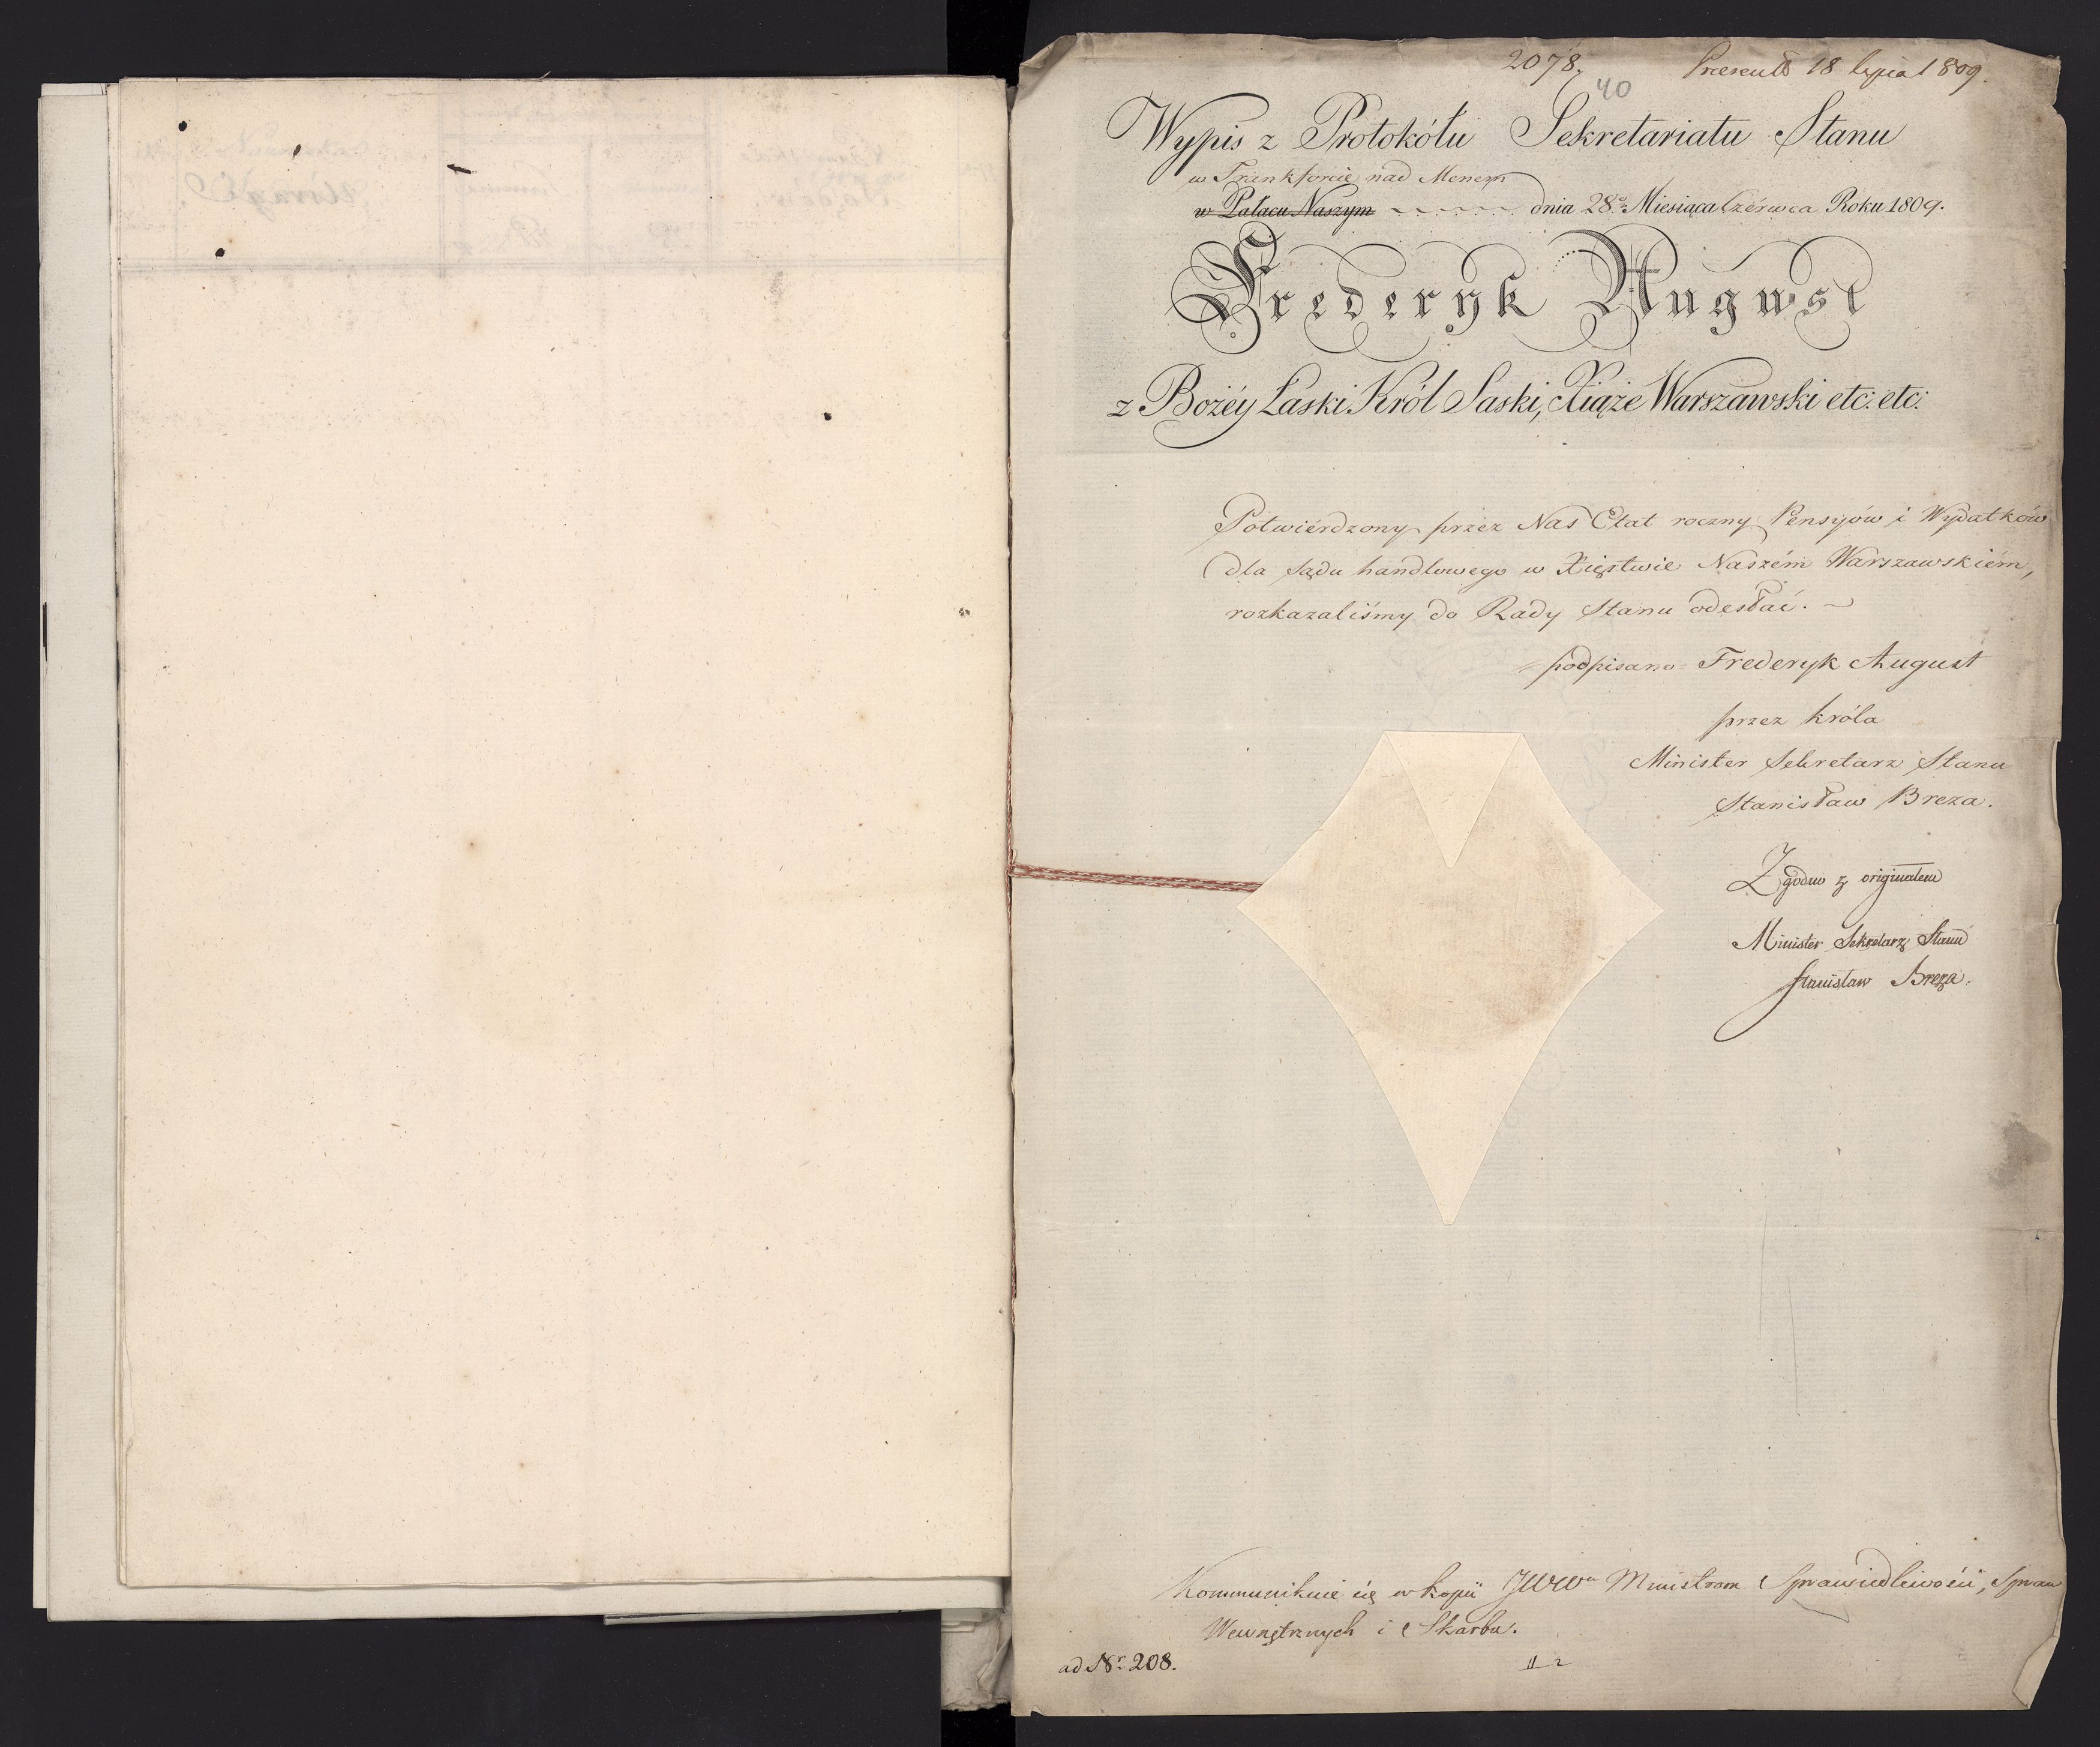 2078.
40
18 lipca 1809.
Wypis z Protokółu Sekretariatu Stanu
w Frankforcie nad Menem
w Pałacu Naszym dnia 28o. Miesiąca Czérwca Roku 1809.
Frederyk August
z Bożéy Łaski Król Saski, Xiąże Warszawski etc: etc:
Potwiérdzony przez Nas Etat roczny Pensyów i Wydatków
dla sądu handlowego w Xięstwie Naszém Warszawskiém,
rozkazaliśmy do Rady Stanu odesłać.
podpisano Frederyk August
przez króla
Minister Sekretarz Stanu
Stanisław Breza.
Zgodno z originałem
Minister Sekretarz Stanu
Stanisław Breza.
Kommunikuie się w kopii JWWm Ministrom Sprawiedliwości, Spraw
Wewnętrznych i Skarbu.
ad Nr. 208.